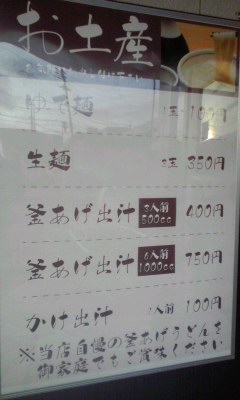 お土産
ゆで麺 1玉 100円
生麺 3玉 350円
釜あげ出汁 3人前 500cc 400円
釜あげ出汁 6人前 1000cc 750円
かけ出汁 1人前 100円
※当店自慢の釜あげうどんを
御家庭でもご賞味ください